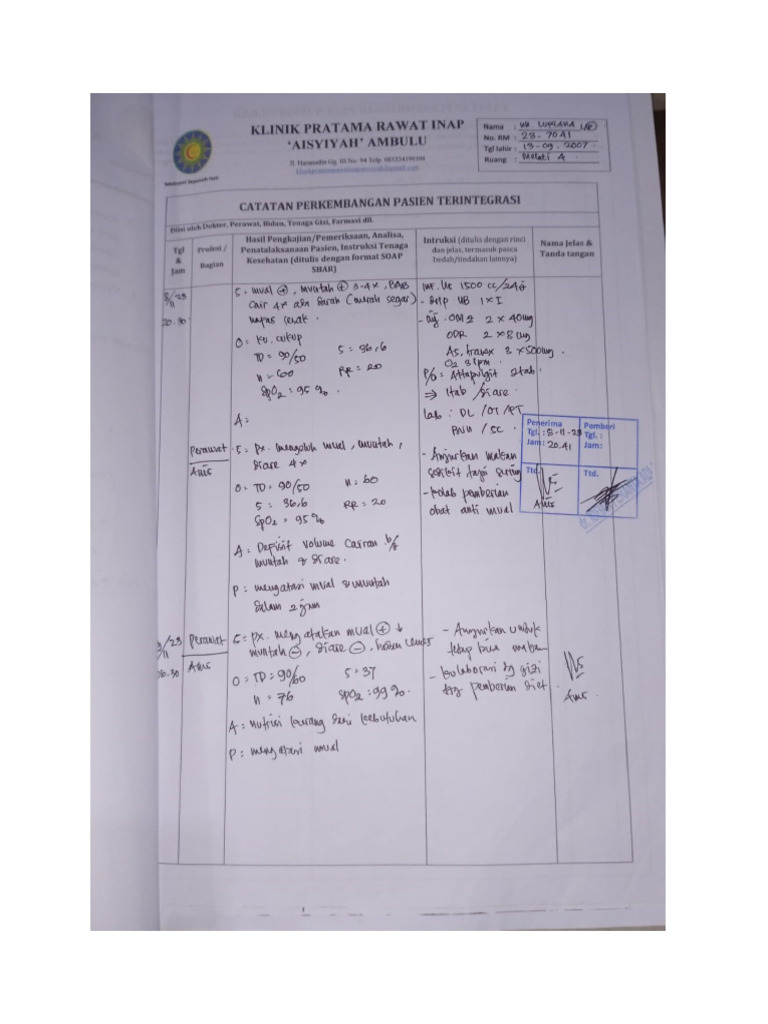 KLINIK PRATAMA RAWAT INAP
'AISYIYAH' AMBULU
Jl. Hasanudin Gg. III No. 94 Telp.
Nama :
No. RM : 23.7041
Tgl lahir : 13-09-2007
Ruang : Melati A
CATATAN PERKEMBANGAN PASIEN TERINTEGRASI
Diisi oleh Dokter, Perawat, Bidan, Tenaga Gizi, Farmasi dll.
Tgl & Jam
Profesi / Bagian
Hasil Pengkajian/Pemeriksaan, Analisa,
Penatalaksanaan Pasien, Instruksi Tenaga
Kesehatan (ditulis dengan format SOAP
SBAR)
Intruksi (ditulis dengan rinci
dan jelas, termasuk pasca
bedah/tindakan lainnya)
Nama Jelas &
Tanda tangan
8/11-23
20.30
S = mual (+), muntah (+) 3-4x, BAB
cair 4x dan darah (merah segar)
O = KU. cukup
TD = 90/50 S = 36,6
N = 60 RR = 20
SpO2 = 95 %.
A =
Inf. 1500 cc/24
1 x I
- OMZ 2 x 40 mg
2 x 8 mg
As. tranex 3 x 500 mg
O2 3 lpm
P/o = Attapulgit 2 tab
⇒ 1 tab / diare
Lab : DL / OT / PT
BUN / SC.
Penerima
Tgl. : 8-11-23
Jam: 20.41
Ttd.
Anis
Pemberi
Tgl. :
Jam:
Ttd.
Perawat
Anis
S = px. mengeluh mual, muntah,
diare 4x
O = TD = 90/50 N = 60
S = 36,6 RR = 20
SpO2 = 95 %
A = Defisit volume cairan b/d
muntah & diare.
P = mengatasi mual & muntah
dalam 2 jam
- Anjurkan makan
sedikit, tapi sering
- kolab pemberian
obat anti mual
9/11 23
06.30
Perawat
Anis
S = px. mengatakan mual (+) ↓
muntah (-), diare (-), badan lemes
O = TD = 90/60 S = 37
N = 76 SpO2 = 99 %.
A = nutrisi kurang dari kebutuhan
P = mengatasi mual
- Anjurkan untuk
tetap bisa makan
- kolaborasi dg gizi
ttg pemberian diet.
Anis.